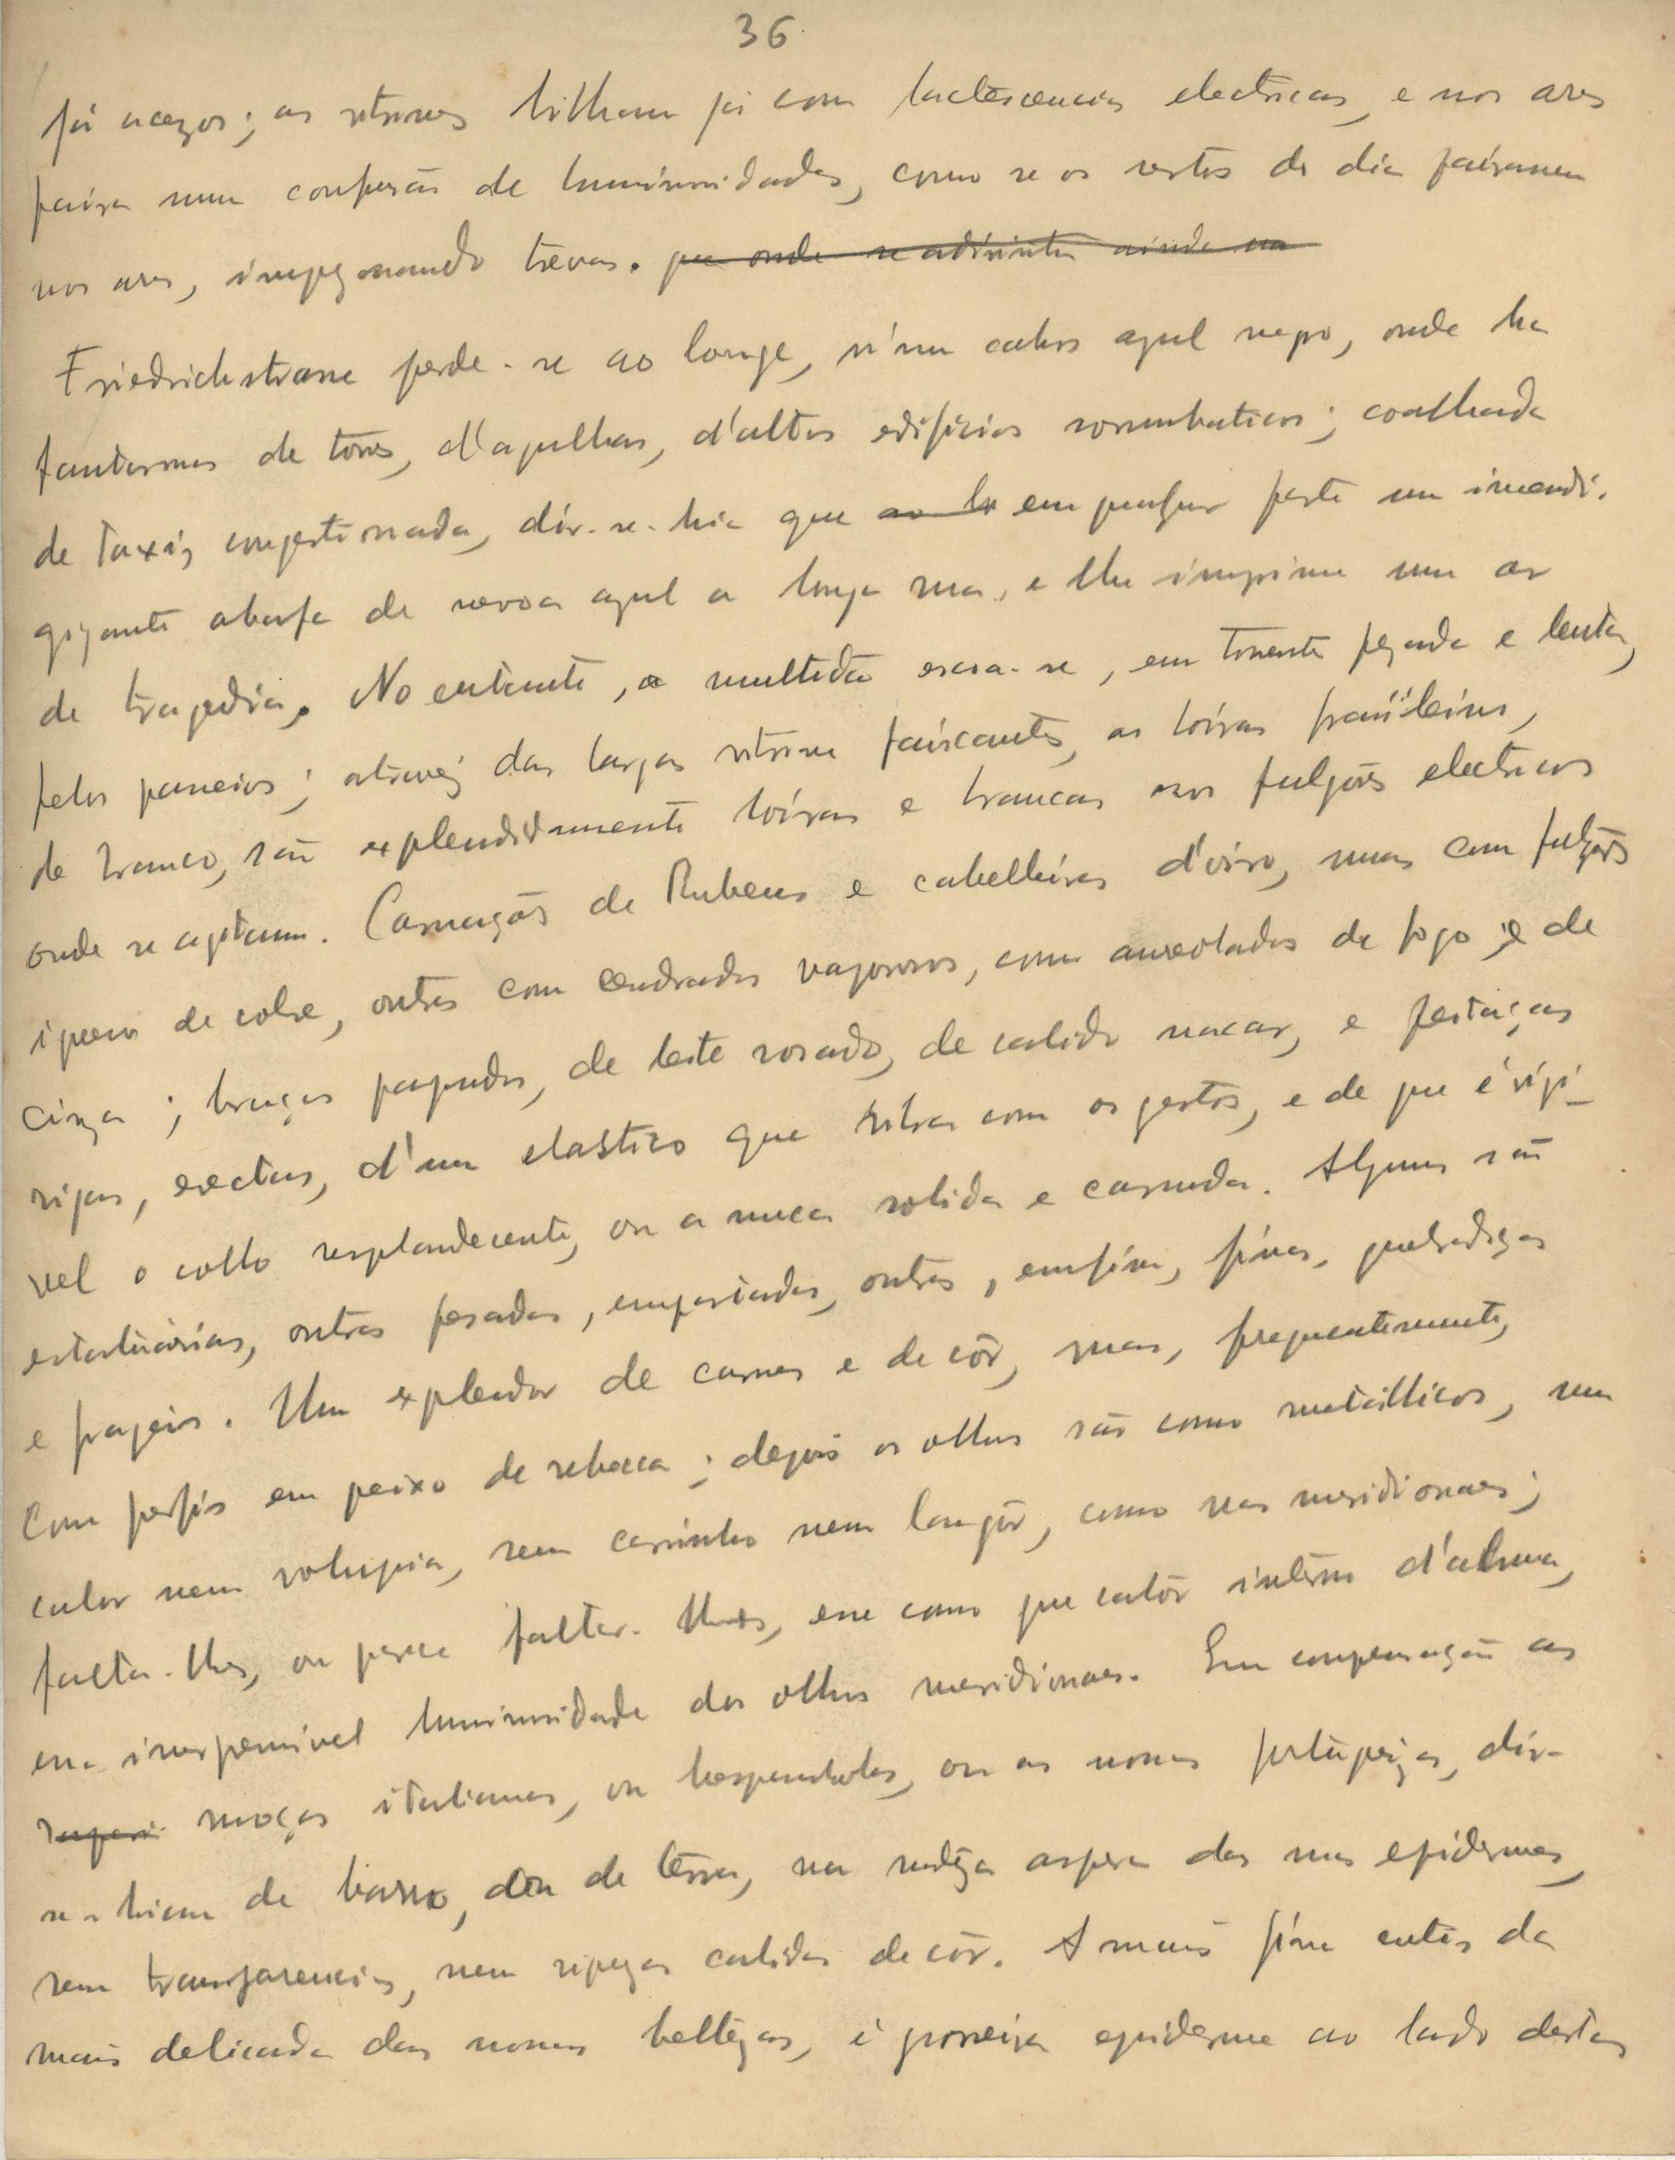 36
já acezos; as vitrines brilham já com lactescencias electricas, e nos ares
paira uma confusão de luminosidades, como se os restos do dia pairassem
nos ares, impregnando trevas. por onde se adivinha ainda na
Friedrichstrasse perde-se ao longe, n'um cahos azul negro, onde ha
fantasmas de torres, d'agulhas, d'altos edificios sorumbaticos; coalhada
de taxis, congestionada, dir-se-hia que em perto um incendi.
gigante abafa de nevoa azul a longa rua, e lhe imprime um ar
de tragedia. No entanto, a multidão escoa-se, em torrente pezada e lenta,
pelos passeios; através das largas vitrines faiscantes, as loiras fraüleins,
de branco, são explendidamente loiras e brancas nos fulgôres electricos
onde se agitam. Carnações de Rubens e cabelleiras d'oiro, umas com fulgôres
igneos de cobre, outras com cendrados vaporosos, como aureoladas de fogo e de
cinza; braços papudos, de leite rosado, de calido nacar, e peitaças
rijas, erectas, d'um elastico que vibra com os gestos, e de que é rigi-
vel o collo resplandecente, ou a nuca solida e carnuda. Algumas são
estatuárias, outras pesadas, empastadas, outras, emfim, finas, quebradiças
e frageis. Um explendor de carnes e de côr, mas, frequentemente,
com perfis em peixo de rebeca; depois os olhos são como metállicos, sem
calor nem volupia, sem carinho nem langôr, como nas meridionaes;
falta-lhes, ou parece faltar-lhes, esse como que calôr intêrno d'alma,
essa luminosidade dos olhos meridionaes. Em compensação as
moças italianas, ou hespanholas, ou as nossas portuguêzas, dir-
se-hiam de barro, ou de terra, na rudêza aspera das suas epidermes,
sem transparencias, nem rijezas calidas de côr. A mais fina cutis da
mais delicada das nossas bellêzas, é grosseira epiderme ao lado destas